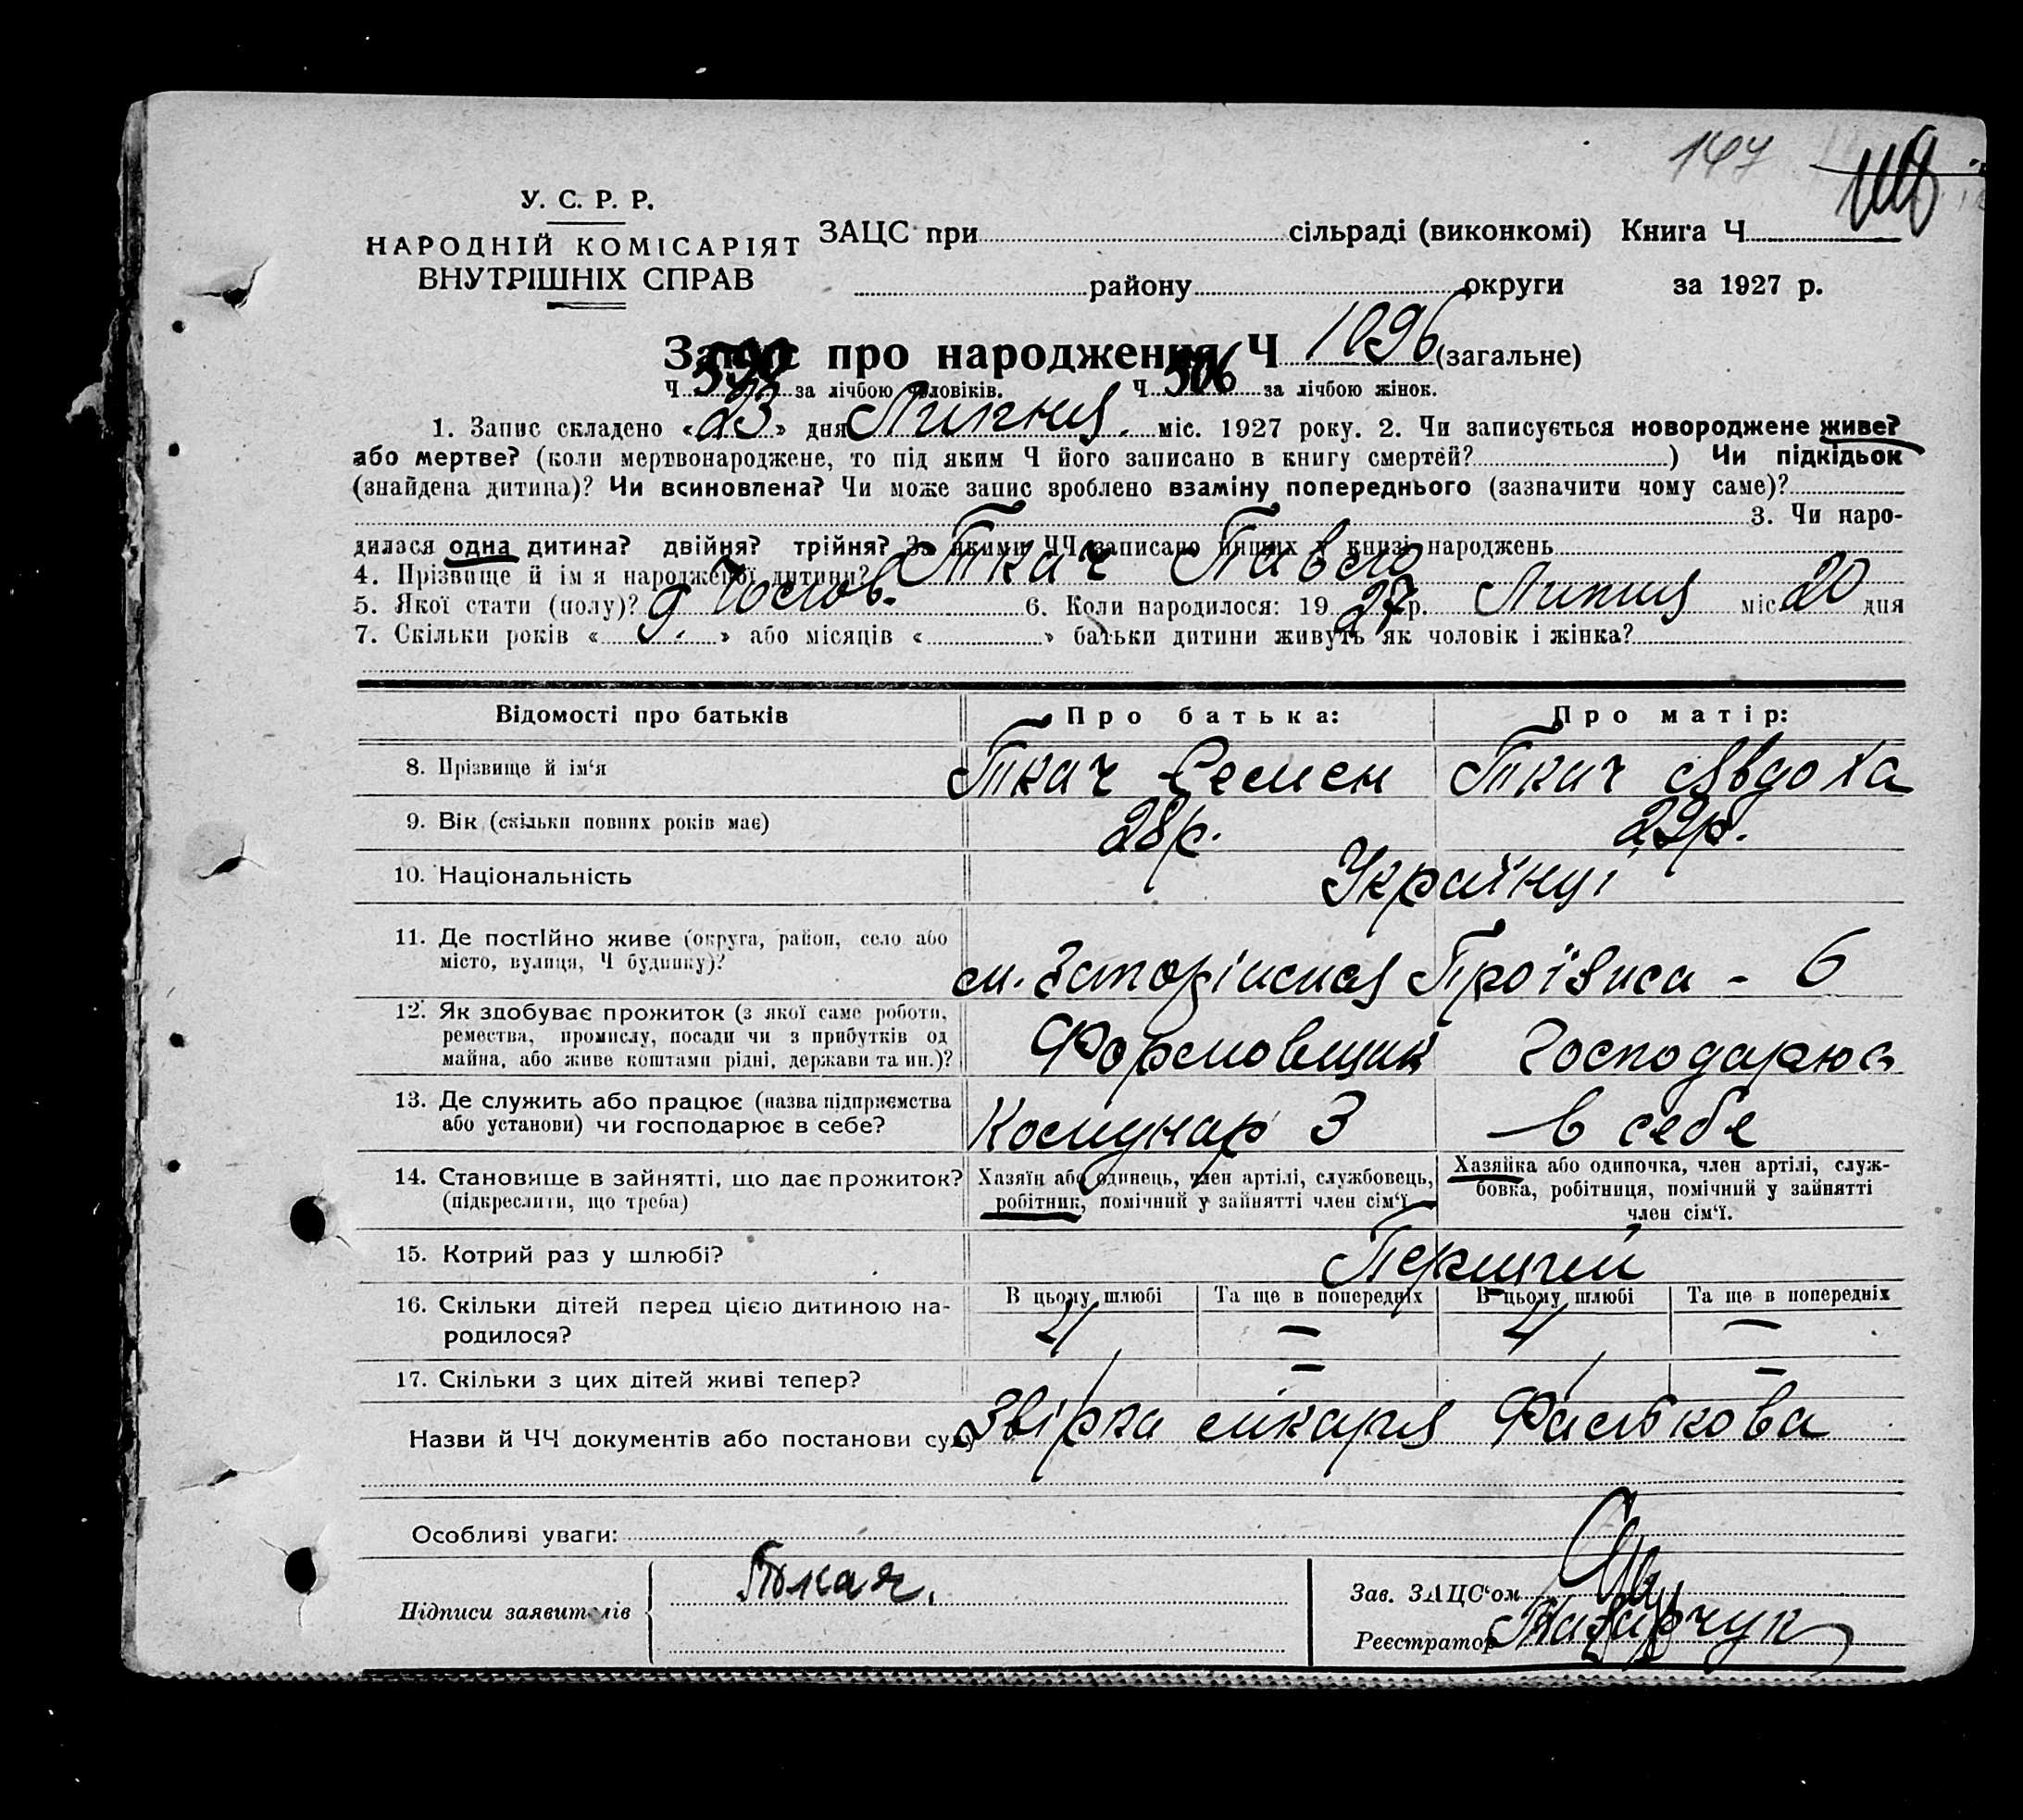 147
У. С. Р. Р.
НАРОДНІЙ КОМІСАРІЯТ
ВНУТРІШНІХ СПРАВ
ЗАЦС при сільраді (виконкомі) Книга Ч
району округи за 1927 р.
Запис про народження Ч 1096 (загальне)
Ч 590 за лічбою чоловіків. Ч 506 за лічбою жінок.
1. Запис складено «23» дня Липня міс. 1927 року. 2. Чи записується новороджене живе?
або мертве? (коли мертвонароджене, то під яким Ч його записано в книгу смертей? ) Чи підкідьок
(знайдена дитина)? Чи всиновлена? Чи може запис зроблено взаміну попереднього (зазначити чому саме)?
3. Чи наро-
дилася одна дитина? двійня? трійня? За якими ЧЧ записано инших у книзі народжень
4. Прізвище й ім я народженої дитини? Ткач Павло
5. Якої стати (полу)? Чолов. 6. Коли народилося: 19 27 р. Липня міс 20 дня
7. Скільки років « 9. » або місяців « » батьки дитини живуть як чоловік і жінка?
Відомості про батьків Про батька: Про матір:
8. Прізвище й ім‘я Ткач Семен Ткач Явдоха
9. Вік (скільки повних років має) 28р. 22р.
10. Національність Українці
11. Де постійно живе (округа, район, село або
місто, вулиця, Ч будинку)? 6
12. Як здобуває прожиток (з якої саме роботи,
ремества, промислу, посади чи з прибутків од
майна, або живе коштами рідні, держави та ин.)? Формовщик Господарює
13. Де служить або працює (назва підприємства
або установи) чи господарює в себе? Комунар 3 в себе
14. Становище в зайнятті, що дає прожиток?
(підкреслити, що треба)
Хазяїн або одинець, член артілі, службовець,
робітник, помічний у зайнятті член сім‘ї.
Хазяйка або одиночка, член артілі, служ-
бовка, робітниця, помічний у зайнятті
член сім‘ї.
15. Котрий раз у шлюбі? Перший
16. Скільки дітей перед цією дитиною на-
родилося?
В цьому шлюбі Та ще в попередніх В цьому шлюбі Та ще в попередніх
4 — 4 —
17. Скільки з цих дітей живі тепер? / — / —
Назви й ЧЧ документів або постанови суду Звірка лікаря Фалькова
Особливі уваги:
Підписи заявителів Ткач.
Зав. ЗАЦС‘ом
Реєстратор